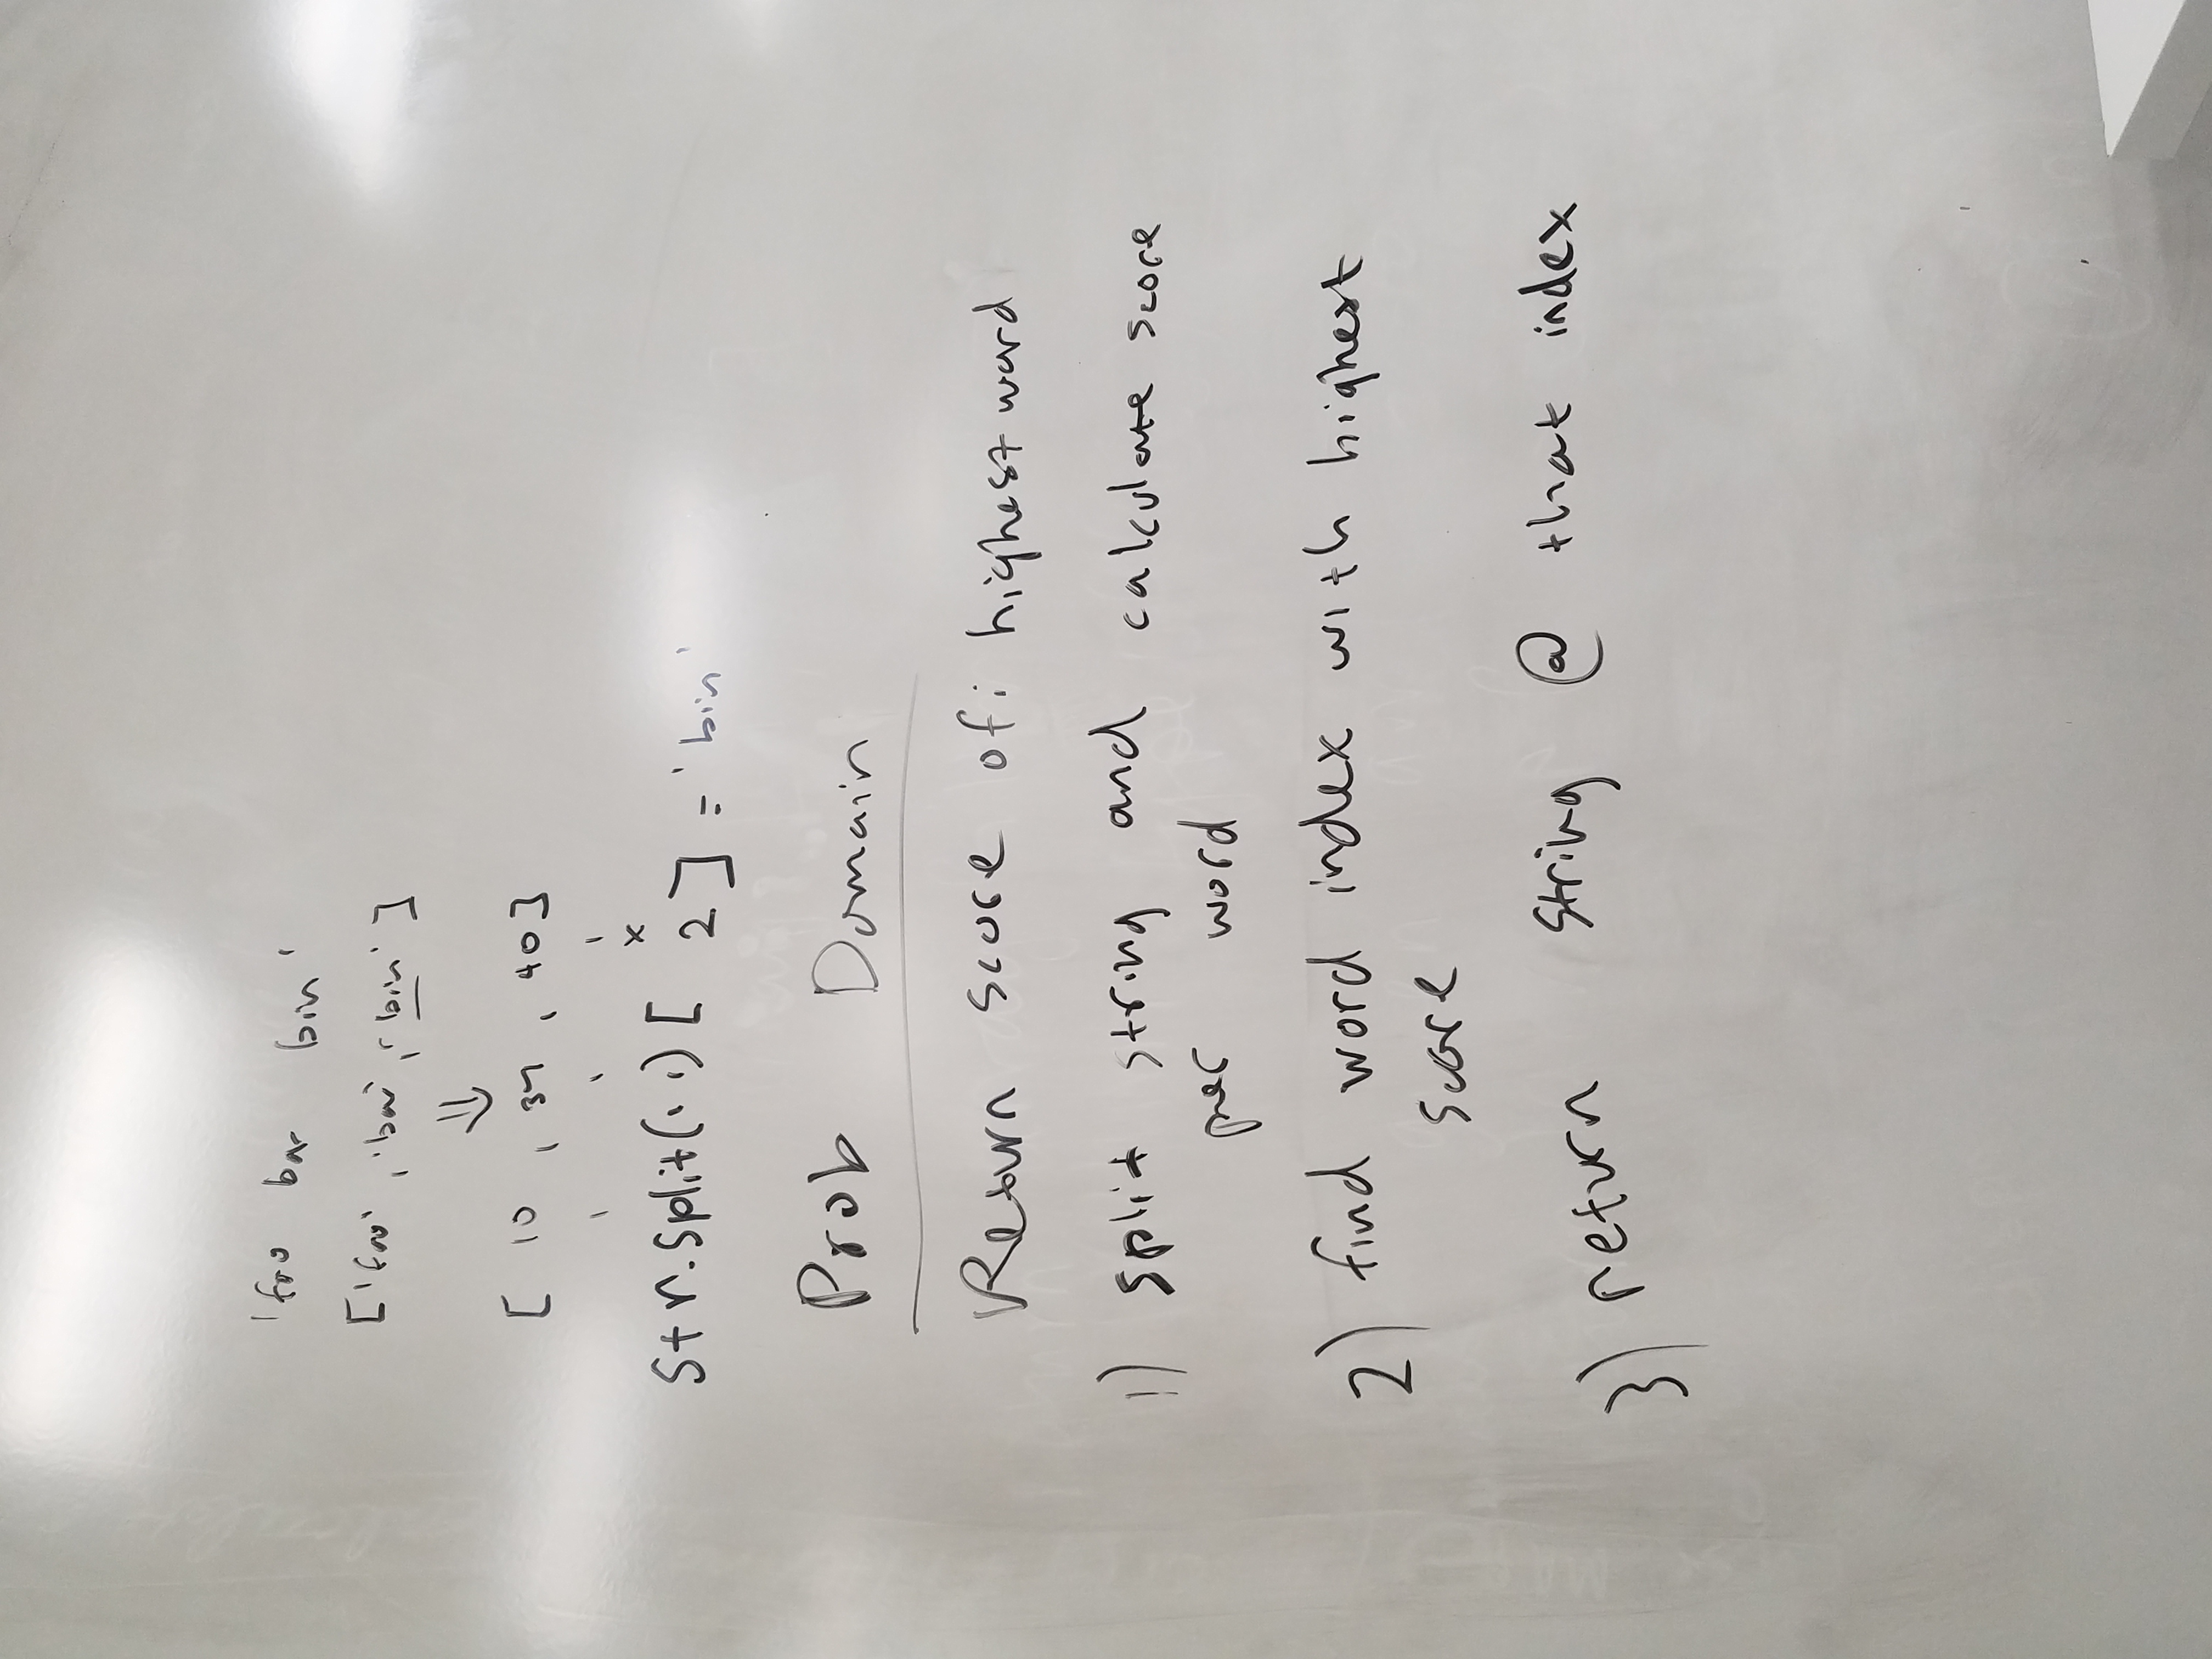 'foo bar bin'
['foo', 'bar', 'bin']
⇓
[ 10, 37, 40]
x
str.split(' ')[ 2 ] = 'bin'
Prob Domain
Return score of: highest word
1) split string and calculate score
per word
2) find word index with highest
score
3) return string @ that index